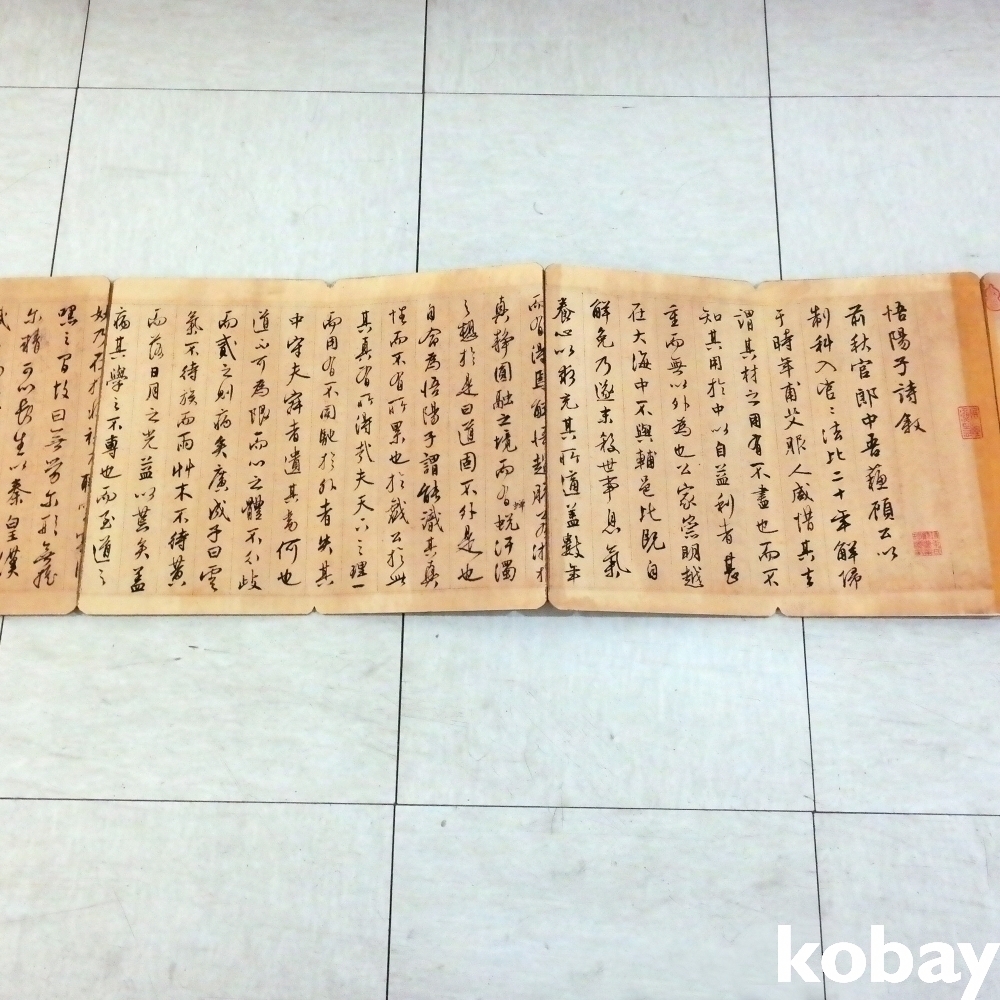 悟陽子詩敘
前秋官郎中吾蘓顧公以
制科入官官法比二十年解佩
于時年甫艾服人咸惜其去
謂其材之用有不盡也而不
知其用於中以自益利者甚
重而無以外為也公家崇明越
在大海中不與輔邑比既自
解免乃遂末殺世事息氣
養心以務充其所道蓋數年
而有得焉解悟超脫
真靜圓融之境而有蛻汙濁
之趣於是曰道固不外是也
自命為悟陽子謂能識其真
性而不有所累也於戲公於此
其真有所得哉夫天下之理一
而用有不同馳於外者失其
中守夫寂者遺其為何也
道不可為限而心之體不分歧
而貳之則病矣廣成子曰雲
氣不待族而雨艸木不待黃
而落日月之光益以荒矣蓋
病其學之不專也而至道之
嘿之間故曰無勞爾形無搖
爾精可以長生以秦皇漢
kobay